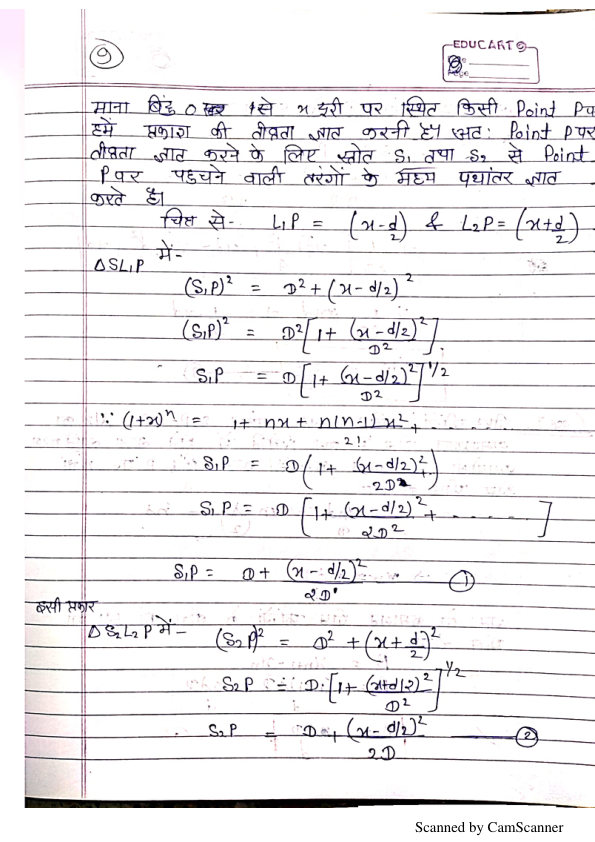 9
EDUCART
माना बिंदु O से x दूरी पर स्थित किसी Point P पर
हमें प्रकाश की तीव्रता ज्ञात करनी है। अतः Point P पर
तीव्रता ज्ञात करने के लिए स्त्रोत S₁ तथा S₂ से Point
P पर पहुचने वाली तरंगों के मध्य पथांतर ज्ञात
करते है।
चित्र से- L₁P = (x-d/2) & L₂P = (x+d/2)
ΔSL₁P में-
(S₁P)² = D² + (x-d/2)²
(S₁P)² = D²[1+ (x-d/2)²/D²]
S₁P = D[1+ (x-d/2)²/D²]^1/2
∵ (1+x)ⁿ = 1+nx+n(n-1)x²/2! +
S₁P = D(1+ (x-d/2)²/2D² +..)
S₁P = D[1+ (x-d/2)²/2D² + - - - - - - ]
S₁P = D+ (x-d/2)²/2D ①
इसी प्रकार
ΔS₂L₂P में- (S₂P)² = D² + (x+d/2)²
S₂P = D.[1+ (x+d/2)²/D²]^1/2
S₂P = D + (x-d/2)²/2D ②
Scanned by CamScanner